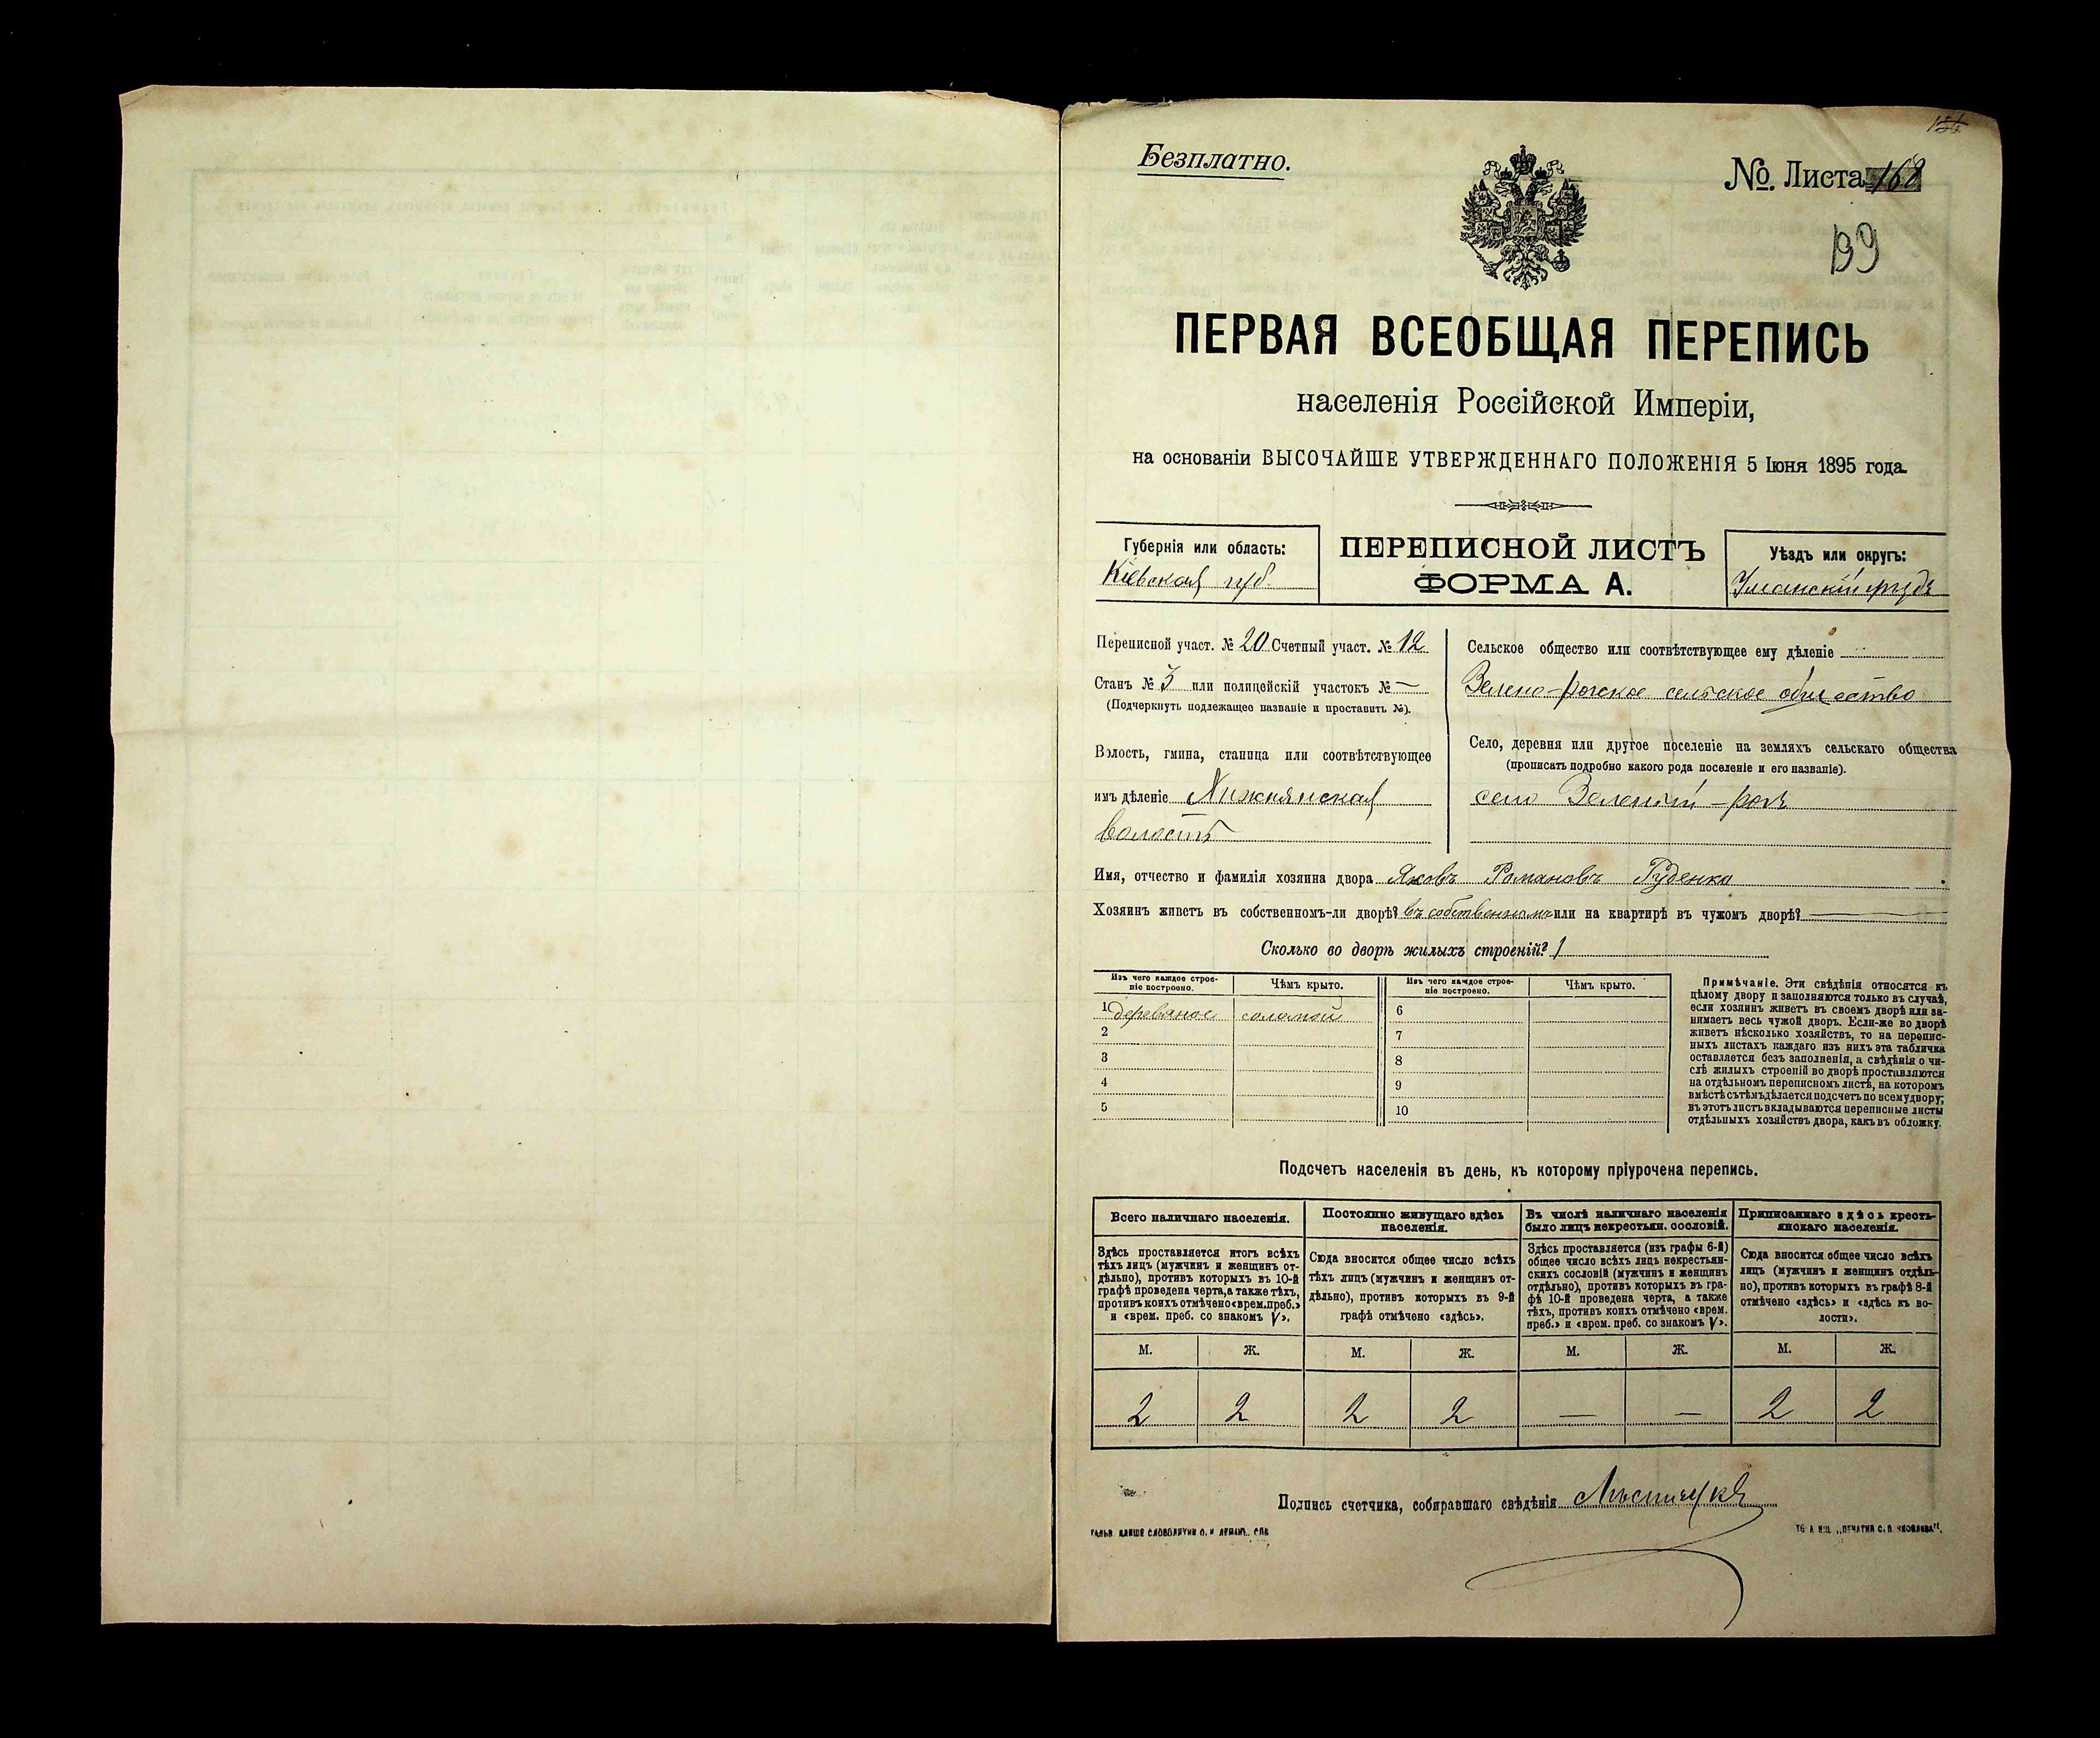 Безплатно.
№ Листа 168
139
ПЕРВАЯ ВСЕОБЩАЯ ПЕРЕПИСЬ
населенія Россійской Имперіи,
на основаніи ВЫСОЧАЙШЕ УТВЕРЖДЕННАГО ПОЛОЖЕНІЯ 5 Іюня 1895 года.
Губернія или область:
Кіевская губ.
ПЕРЕПИСНОЙ ЛИСТЪ
ФОРМА А.
Уѣздъ или округъ:
Уманскій уѣздъ
Переписной участ. № 20 Счетный участ. № 12
Станъ № 3 или полицейскій участокъ № —
(Подчеркнуть подлежащее названіе и проставить №).
Волость, гмина, станица или соотвѣтствующее
имъ дѣленіе Хижнянская
волость
Сельское общество или соотвѣтствующее ему дѣленіе
Зелено-рогское сельское общество
Село, деревня или другое поселеніе на земляхъ сельскаго общества
(прописать подробно какого рода поселеніе и его названіе).
село Зеленый-рогъ
Имя, отчество и фамилія хозяина двора Яковъ Романовъ Гуденко
Хозяинъ живетъ въ собственномъ-ли дворѣ? въ собственномъ или на квартирѣ въ чужомъ дворѣ? —
Сколько во дворѣ жилыхъ строеній? 1
Изъ чего каждое строе-
ніе построено.
Чѣмъ крыто.
Изъ чего каждое строе-
ніе построено.
Чѣмъ крыто.
1 деревяное соломой
2
3
4
5
6
7
8
9
10
Примѣчаніе. Эти свѣдѣнія относятся къ
цѣлому двору и заполняются только въ случаѣ,
если хозяинъ живетъ въ своемъ дворѣ или за-
нимаетъ весь чужой дворъ. Если-же во дворѣ
живетъ нѣсколько хозяйствъ, то на перепис-
ныхъ листахъ каждаго изъ нихъ эта табличка
оставляется безъ заполненія, а свѣдѣнія о чи-
слѣ жилыхъ строеній во дворѣ проставляются
на отдѣльномъ переписномъ листѣ, на которомъ
вмѣстѣ съ тѣмъ дѣлается подсчетъ по всему двору;
въ этотъ листъ вкладываются переписные листы
отдѣльныхъ хозяйствъ двора, какъ въ обложку.
Подсчетъ населенія въ день, къ которому пріурочена перепись.
Всего наличнаго населенія.
Здѣсь проставляется итогъ всѣхъ
тѣхъ лицъ (мужчинъ и женщинъ от-
дѣльно), противъ которыхъ въ 10-й
графѣ проведена черта, а также тѣхъ,
противъ коихъ отмѣчено «врем. преб.»
и «врем. преб. со знакомъ V».
Постоянно живущаго здѣсь
населенія.
Сюда вносится общее число всѣхъ
тѣхъ лицъ (мужчинъ и женщинъ от-
дѣльно), противъ которыхъ въ 9-й
графѣ отмѣчено «здѣсь».
Въ числѣ наличнаго населенія
было лицъ некрестьян. сословій.
Здѣсь проставляется (изъ графы 6-й)
общее число всѣхъ лицъ некрестьян-
скихъ сословій (мужчинъ и женщинъ
отдѣльно), противъ которыхъ въ гра-
фѣ 10-й проведена черта, а также
тѣхъ, противъ коихъ отмѣчено «врем.
преб.» и «врем. преб. со знакомъ V».
Приписаннаго здѣсь кресть-
янскаго населенія.
Сюда вносится общее число всѣхъ
лицъ (мужчинъ и женщинъ отдѣль-
но), противъ которыхъ въ графѣ 8-й
отмѣчено «здѣсь» и «здѣсь къ во-
лости».
М. Ж. М. Ж. М. Ж. М. Ж.
2 2 2 2 — — 2 2
Подпись счетчика, собиравшаго свѣдѣнія